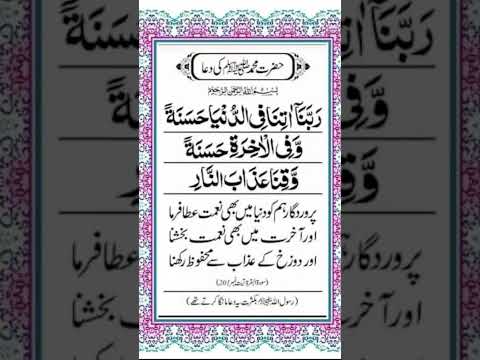 حضرت محمد ﷺ کی دعا
بِسْمِ اللّٰهِ الرَّحْمٰنِ الرَّحِيْمِ
رَبَّنَآ اٰتِنَا فِی الدُّنْیَا حَسَنَةً
وَّفِی الْاٰخِرَةِ حَسَنَةً
وَّقِنَا عَذَابَ النَّارِ
پروردگار ہم کو دنیا میں بھی نعمت عطا فرما
اور آخرت میں بھی نعمت بخشنا
اور دوزخ کے عذاب سے محفوظ رکھنا
(سورۃ البقرۃ آیت نمبر 201)
(رسول اللہ ﷺ بکثرت یہ دعا مانگا کرتے تھے)